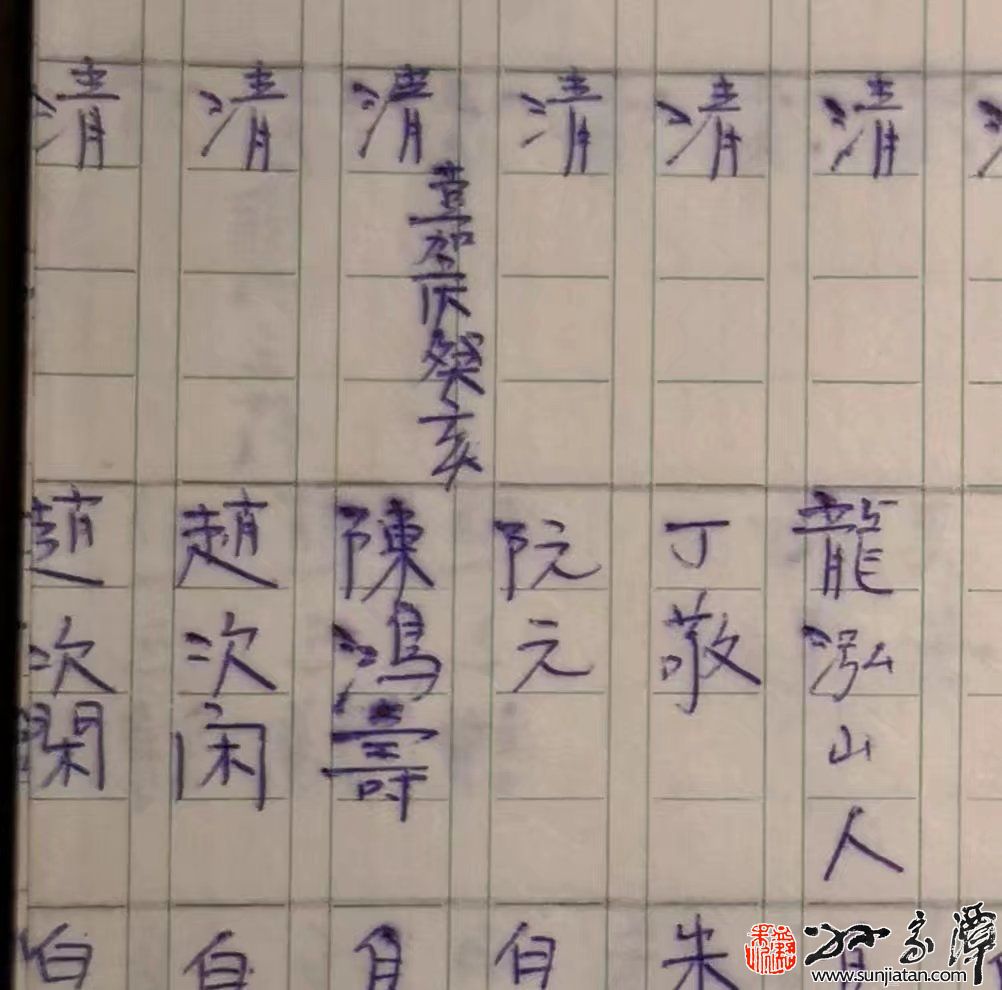 清 龍泓山人
清 丁敬 朱
清 阮元 白
清 嘉庆癸亥 陳鴻壽
清 趙次闲 白
清 趙次閑 白
孙家潭
www.sunjiatan.com